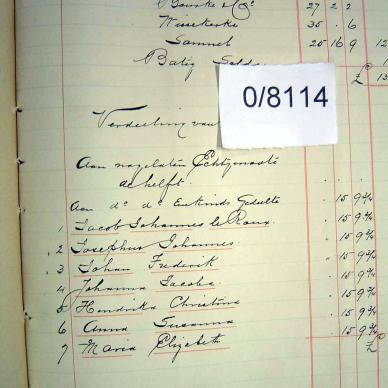 27 2 2
Wissekerke 35 . 6
Sammel 20 16 9 12
Batig £ 13
0/8114
Verdeeling van
Aan nagelaten Echtgenoote
de helft.
Aan do do Eenkinds Gedeelte . 15 9 3/4
1 Jacob Johannes le Roux . 15 9 3/4
2 Josephus Johannes . 15 9 3/4
3 Johan Frederik . 15 9 3/4
4 Johanna Jacoba . 15 9 3/4
5 Hendrika Christina . 15 9 3/4
6 Anna Susanna . 15 9 3/4
7 Maria Elizabeth . 15 9 3/4
£